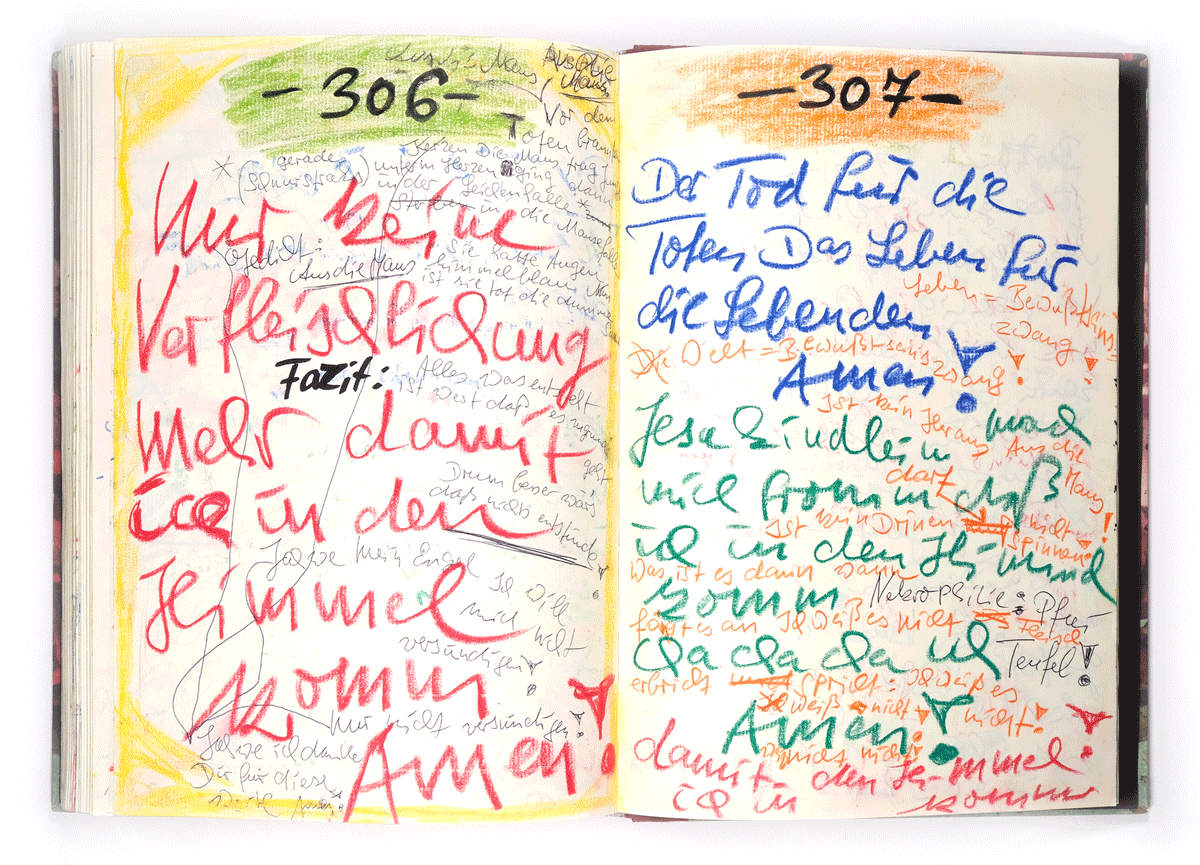 -306-
Aus die
Maus
Vor den
Toten
Kerzen Die Maus trug
* gerade unterm Herzen ging dann
in der Leichenhalle *
Sterben in die Mausefalle
Nur keine
Gedicht:
Aus die Maus
Sie hatte Augen
himmelblau Nun
ist sie tot die dumme
Verfleischlichung
Fazit:
Alles was entsteht
ist wert daß es zugrunde
geht
mehr damit
Drum besser wär's
daß nichts entstünde!
ich in den
Jahwe mein Engel Ich will
mich nicht
versündigen!
Himmel
komm
Nur nicht versündigen!
Amen!
Jahwe ich danke
Dir für diese
Worte Amen!
-307-
Der Tod für die
Toten Das Leben für
die Lebenden!
Leben = Bewußtseins-
zwang!
Die Welt = Bewußtseinszwang!
Amen!
Ist kein Heraus Aus die
Maus!
Jesukindlein mach
mich fromm daß
darf
Ist kein Drinen nicht
spinnen!
ich in den Himmel
Was ist es dann wann
komm
Nekrophilie: Pfui
Teufel!
fängt es an Ich weiß es nicht
da da da ich
erbricht spricht: Ich weiß es
nicht!
Ich weiß nicht!
Amen!
nicht!
damit den Himmel
ich in komm